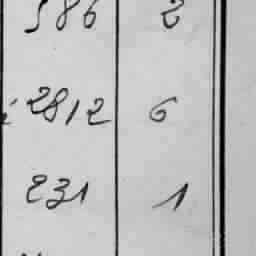 586 2
2812 6
231 1